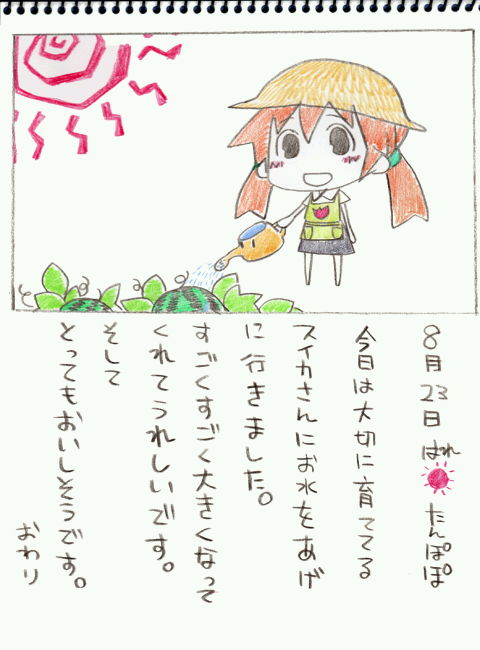 8月23日 はれ たんぽぽ
今日は大切に育ててる
スイカさんにお水をあげ
に行きました。
すごくすごく大きくなって
くれてうれしいです。
そして
とってもおいしそうです。
おわり